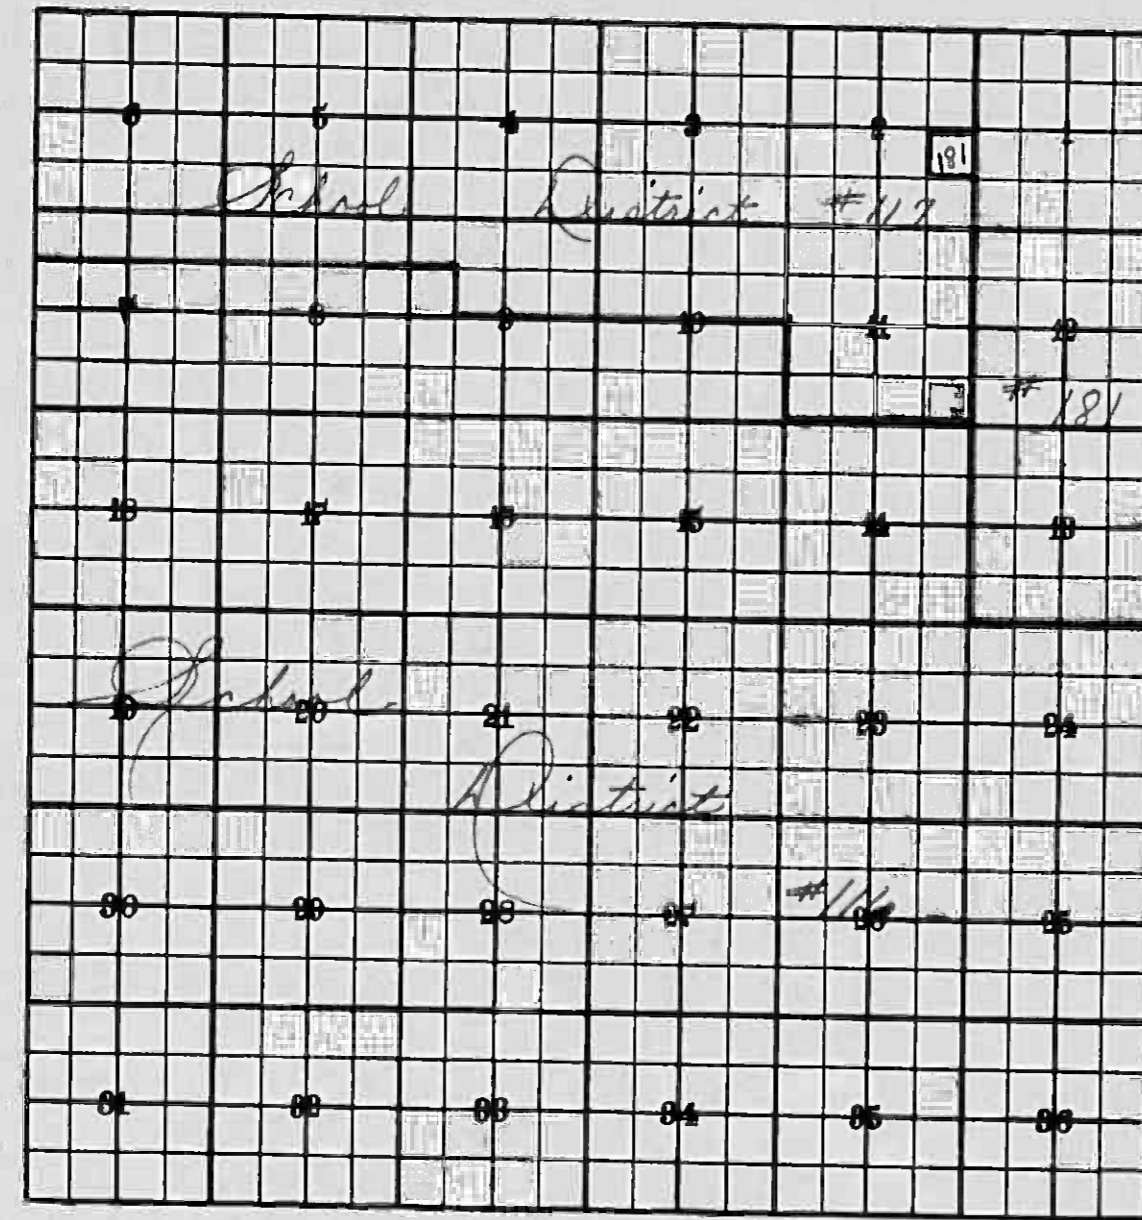 6 5 4 3 2 1
181
School District #117
7 8 9 10 11 12
# 181
18 17 16 15 14 13
School
19 20 21 22 23 24
District
30 29 28 27 26 25
31 32 33 34 35 36